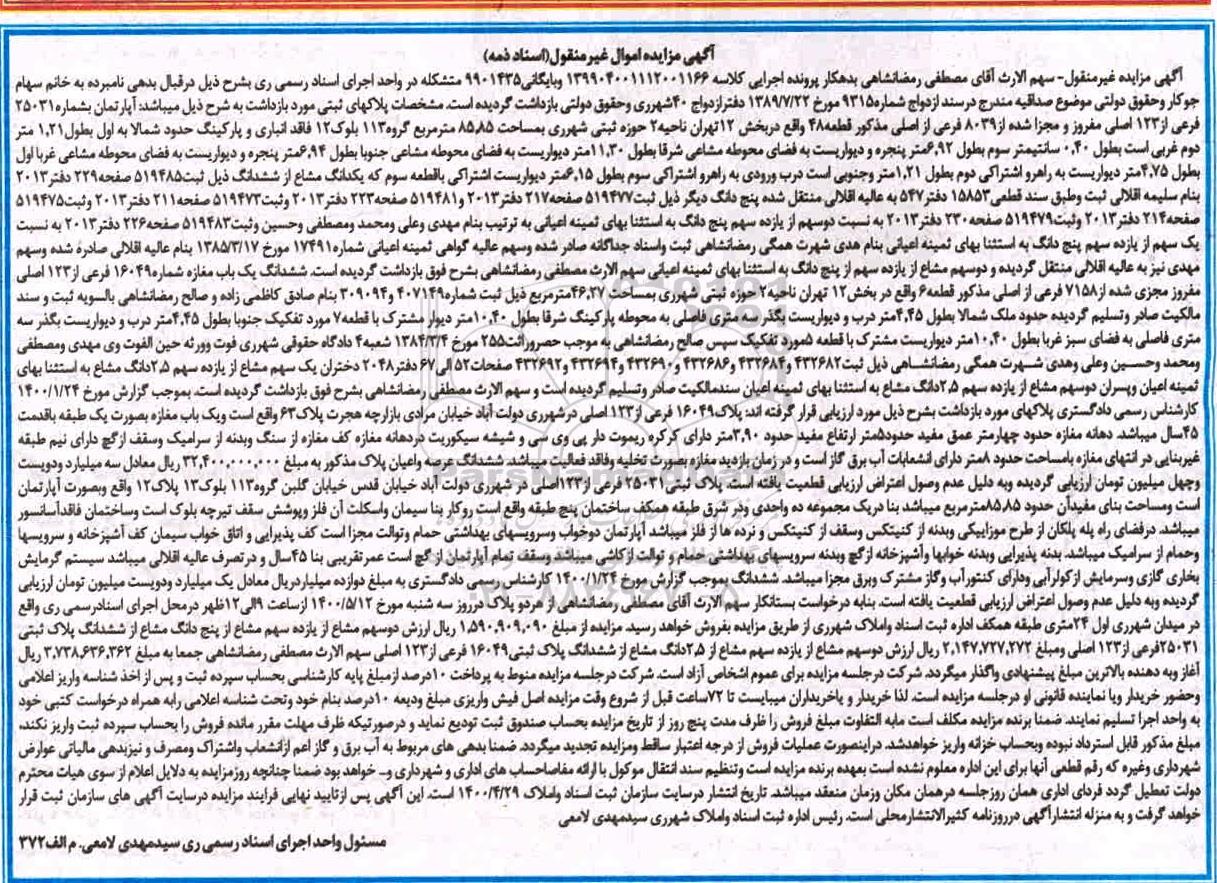 آگهی مزایده اموال غیرمنقول(اسناد ذمه)
آگهی مزایده غیرمنقول- سهم الارث آقای مصطفی رمضانشاهی بدهکار پرونده اجرایی کلاسه ۱۳۹۹۰۴۰۰۱۱۱۲۰۰۱۱۶۶ وبایگانی۹۹۰۱۴۳۵ متشکله در واحد اجرای اسناد رسمی ری بشرح ذیل درقبال بدهی نامبرده به خانم سهام
جوکار وحقوق دولتی موضوع صداقیه مندرج درسند ازدواج شماره۹۳۱۵ مورخ ۱۳۸۹/۷/۲۲ دفترازدواج ۴۰شهرری وحقوق دولتی بازداشت گردیده است. مشخصات پلاکهای ثبتی مورد بازداشت به شرح ذیل میباشد: آپارتمان بشماره۲۵۰۳۱
فرعی از۱۲۳ اصلی مفروز و مجزا شده از۸۰۳۹ فرعی از اصلی مذکور قطعه۴۸ واقع دربخش ۱۲تهران ناحیه۲ حوزه ثبتی شهرری بمساحت ۸۵,۸۵ مترمربع گروه۱۱۳ بلوک۱۲ فاقد انباری و پارکینگ حدود شمالا به اول بطول۱,۲۱ متر
دوم غربی است بطول ۰,۴۰ سانتیمتر سوم بطول ۶,۹۲متر پنجره و دیواریست به فضای محوطه مشاعی شرقا بطول ۱۱,۳۰متر دیواریست به فضای محوطه مشاعی جنوبا بطول ۶,۹۴متر پنجره و دیواریست به فضای محوطه مشاعی غربا اول
بطول ۴,۷۵متر دیواریست به راهرو اشتراکی دوم بطول ۱,۲۱متر وجنوبی است درب ورودی به راهرو اشتراکی سوم بطول ۶,۱۵متر دیواریست اشتراکی باقطعه سوم که یکدانگ مشاع از ششدانگ ذیل ثبت۵۱۹۴۸۵ صفحه۲۲۹ دفتر۲۰۱۳
بنام سلیمه اقلالی ثبت وطبق سند قطعی۱۵۸۵۳ دفتر۵۴۷ به عالیه اقلالی منتقل شده پنج دانگ دیگر ذیل ثبت۵۱۹۴۷۷ صفحه۲۱۷ دفتر۲۰۱۳ و۵۱۹۴۸۱ صفحه۲۲۳ دفتر۲۰۱۳ وثبت۵۱۹۴۷۳ صفحه۲۱۱ دفتر۲۰۱۳ وثبت۵۱۹۴۷۵
صفحه۲۱۴ دفتر۲۰۱۳ وثبت۵۱۹۴۷۹ صفحه۲۳۰ دفتر۲۰۱۳ به نسبت دوسهم از یازده سهم پنج دانگ به استثنا بهای ثمینه اعیانی به ترتیب بنام مهدی وعلی ومحمد ومصطفی وحسین وثبت۵۱۹۴۸۳ صفحه۲۲۶ دفتر۲۰۱۳ به نسبت
یک سهم از یازده سهم پنج دانگ به استثنا بهای ثمینه اعیانی بنام هدی شهرت همگی رمضانشاهی ثبت واسناد جداگانه صادر شده وسهم عالیه گواهی ثمینه اعیانی شماره۱۷۴۹۱ مورخ ۱۳۸۵/۳/۱۷ بنام عالیه اقلالی صادره شده وسهم
مهدی نیز به عالیه اقلالی منتقل گردیده و دوسهم مشاع از یازده سهم از پنج دانگ به استثنا بهای ثمینه اعیانی سهم الارث مصطفی رمضانشاهی بشرح فوق بازداشت گردیده است. ششدانگ یک باب مغازه شماره۱۶۰۴۹ فرعی از۱۲۳ اصلی
مفروز مجزی شده از۷۱۵۸ فرعی از اصلی مذکور قطعه۶ واقع در بخش۱۲ تهران ناحیه۲ حوزه ثبتی شهرری بمساحت ۴۶,۲۷مترمربع ذیل ثبت شماره۴۰۷۱۴۹ و۳۰۹۰۹۴ بنام صادق کاظمی زاده و صالح رمضانشاهی بالسویه ثبت و سند
مالکیت صادر وتسلیم گردیده حدود ملک شمالا بطول ۴,۴۵متر درب و دیواریست بگذر سه متری فاصلی به محوطه پارکینگ شرقا بطول ۱۰,۴۰متر دیوار مشترک با قطعه۷ مورد تفکیک جنوبا بطول ۴,۴۵متر درب و دیواریست بگذر سه
متری فاصلی به فضای سبز غربا بطول ۱۰,۴۰متر دیواریست مشترک با قطعه ۵مورد تفکیک سپس صالح رمضانشاهی به موجب حصروراثت۲۵۵ مورخ ۱۳۸۴/۳/۴ شعبه۴ دادگاه حقوقی شهرری فوت وورثه حین الفوت وی مهدی ومصطفی
ومحمد وحسین وعلی وهدی شهرت همگی رمضانشاهی ذیل ثبت۴۳۲۶۸۲ و۴۳۲۶۸۴ و۴۳۲۶۸۶ و۴۳۲۶۹۰ و۴۳۲۶۹۴ و۴۳۲۶۹۲ صفحات۵۲ الی۶۷ دفتر۲۰۴۸ دختران یک سهم مشاع از یازده سهم ۲,۵دانگ مشاع به استثنا بهای
ثمینه اعیان وپسران دوسهم مشاع از یازده سهم ۲,۵دانگ مشاع به استثنا بهای ثمینه اعیان سندمالکیت صادر وتسلیم گردیده است و سهم الارث مصطفی رمضانشاهی بشرح فوق بازداشت گردیده است. بموجب گزارش مورخ ۱۴۰۰/۱/۲۴
کارشناس رسمی دادگستری پلاکهای مورد بازداشت بشرح ذیل مورد ارزیابی قرار گرفته اند: پلاک۱۶۰۴۹ فرعی از۱۲۳ اصلی درشهرری دولت آباد خیابان مرادی بازارچه هجرت پلاک۶۳ واقع است ویک باب مغازه بصورت یک طبقه باقدمت
۴۵سال میباشد. دهانه مغازه حدود چهارمتر عمق مفید حدود۵متر ارتفاع مفید حدود ۳,۹۰متر دارای کرکره ریموت دار پی وی سی و شیشه سیکوریت دردهانه مغازه کف مغازه از سنگ وبدنه از سرامیک وسقف ازگچ دارای نیم طبقه
غیربنایی در انتهای مغازه بامساحت حدود ۸متر دارای انشعابات آب برق گاز است و در زمان بازدید مغازه بصورت تخلیه وفاقد فعالیت میباشد. ششدانگ عرصه واعیان پلاک مذکور به مبلغ ۳۲,۴۰۰,۰۰۰,۰۰۰ ریال معادل سه میلیارد ودویست
وچهل میلیون تومان ارزیابی گردیده وبه دلیل عدم وصول اعتراض ارزیابی قطعیت یافته است. پلاک ثبتی۲۵۰۳۱ فرعی از۱۲۳اصلی در شهرری دولت آباد خیابان قدس خیابان گلبن گروه۱۱۳ بلوک۱۳ پلاک۱۲ واقع وبصورت آپارتمان
است ومساحت بنای مفیدآن حدود ۸۵,۸۵مترمربع میباشد بنا دریک مجموعه ده واحدی ودر شرق طبقه همکف ساختمان پنج طبقه واقع است روکار بنا سیمان واسکلت آن فلز وپوشش سقف تیرچه بلوک است وساختمان فاقدآسانسور
میباشد. درفضای راه پله پلکان از طرح موزاییکی وبدنه از کنیتکس وسقف از کنیتکس و نرده ها از فلز میباشد آپارتمان دوخواب وسرویسهای بهداشتی حمام وتوالت مجزا است کف پذیرایی و اتاق خواب سیمان کف آشپزخانه و سرویسها
وحمام از سرامیک میباشد. بدنه پذیرایی وبدنه خوابها وآشپزخانه ازگچ وبدنه سرویسهای بهداشتی حمام و توالت ازکاشی میباشد وسقف تمام آپارتمان از گچ است عمرتقریبی بنا ۴۵سال و درتصرف عالیه اقلالی میباشد. سیستم گرمایش
بخاری گازی وسرمایش ازکولرآبی ودارای کنتورآب وگاز مشترک وبرق مجزا میباشد. ششدانگ بموجب گزارش مورخ ۱۴۰۰/۱/۲۴ کارشناس رسمی دادگستری به مبلغ دوازده میلیاردریال معادل یک میلیارد ودویست میلیون تومان ارزیابی
گردیده وبه دلیل عدم وصول اعتراض ارزیابی قطعیت یافته است. بنابه درخواست بستانکار سهم الارث آقای مصطفی رمضانشاهی از هردو پلاک درروز سه شنبه مورخ ۱۴۰۰/۵/۱۲ ازساعت ۹الی۱۲ظهر درمحل اجرای اسنادرسمی ری واقع
در میدان شهرری اول ۲۴متری طبقه همکف اداره ثبت اسناد واملاک شهرری از طریق مزایده بفروش خواهد رسید. مزایده از مبلغ ۱,۵۹۰,۹۰۹,۰۹۰ ریال ارزش دوسهم مشاع از یازده سهم مشاع از پنج دانگ مشاع از ششدانگ پلاک ثبتی
۲۵۰۳۱فرعی از۱۲۳ اصلی ومبلغ ۲,۱۴۷,۷۲۷,۲۷۲ ریال ارزش دوسهم مشاع از یازده سهم مشاع از ۲,۵دانگ مشاع از ششدانگ پلاک ثبتی۱۶۰۴۹ فرعی از۱۲۳ اصلی سهم الارث مصطفی رمضانشاهی جمعا به مبلغ ۳,۷۳۸,۶۳۶,۳۶۲ ریال
آغاز وبه دهنده بالاترین مبلغ پیشنهادی واگذار میگردد. شرکت درجلسه مزایده برای عموم اشخاص آزاد است. شرکت درجلسه مزایده منوط به پرداخت ۱۰درصد ازمبلغ پایه کارشناسی بحساب سپرده ثبت و پس از اخذ شناسه واریز اعلامی
وحضور خریدار ویا نماینده قانونی او درجلسه مزایده است. لذا خریدار و یاخریداران میبایست تا ۷۲ساعت قبل از شروع وقت مزایده اصل فیش واریزی مبلغ ودیعه ۱۰درصد بنام خود وتحت شناسه اعلامی رابه همراه درخواست کتبی خود
به واحد اجرا تسلیم نمایند. ضمنا برنده مزایده مکلف است مابه التفاوت مبلغ فروش را ظرف مدت پنج روز از تاریخ مزایده بحساب صندوق ثبت تودیع نماید و درصورتیکه ظرف مهلت مقرر مانده فروش را بحساب سپرده ثبت واریز نکنند
مبلغ مذکور قابل استرداد نبوده وبحساب خزانه واریز خواهدشد. دراینصورت عملیات فروش از درجه اعتبار ساقط ومزایده تجدید میگردد. ضمنا بدهی های مربوط به آب برق و گاز اعم ازانشعاب واشتراک ومصرف و نیزبدهی مالیاتی عوارض
شهرداری وغیره که رقم قطعی آنها برای این اداره معلوم نشده است بعهده برنده مزایده است وتنظیم سند انتقال موکول با ارائه مفاصاحساب های اداری و شهرداری و.. خواهد بود ضمنا چنانچه روزمزایده به دلایل اعلام از سوی هیات محترم
دولت تعطیل گردد فردای اداری همان روزجلسه درهمان مکان وزمان منعقد میباشد. تاریخ انتشار درسایت سازمان ثبت اسناد واملاک ۱۴۰۰/۴/۲۹ است. این آگهی پس ازتایید نهایی فرایند مزایده درسایت آگهی های سازمان ثبت قرار
خواهد گرفت و به منزله انتشارآگهی درروزنامه کثیرالانتشارمحلی است. رئیس اداره ثبت اسناد واملاک شهرری سیدمهدی لامعی
مسئول واحد اجرای اسناد رسمی ری سیدمهدی لامعی. م الف۳۷۲